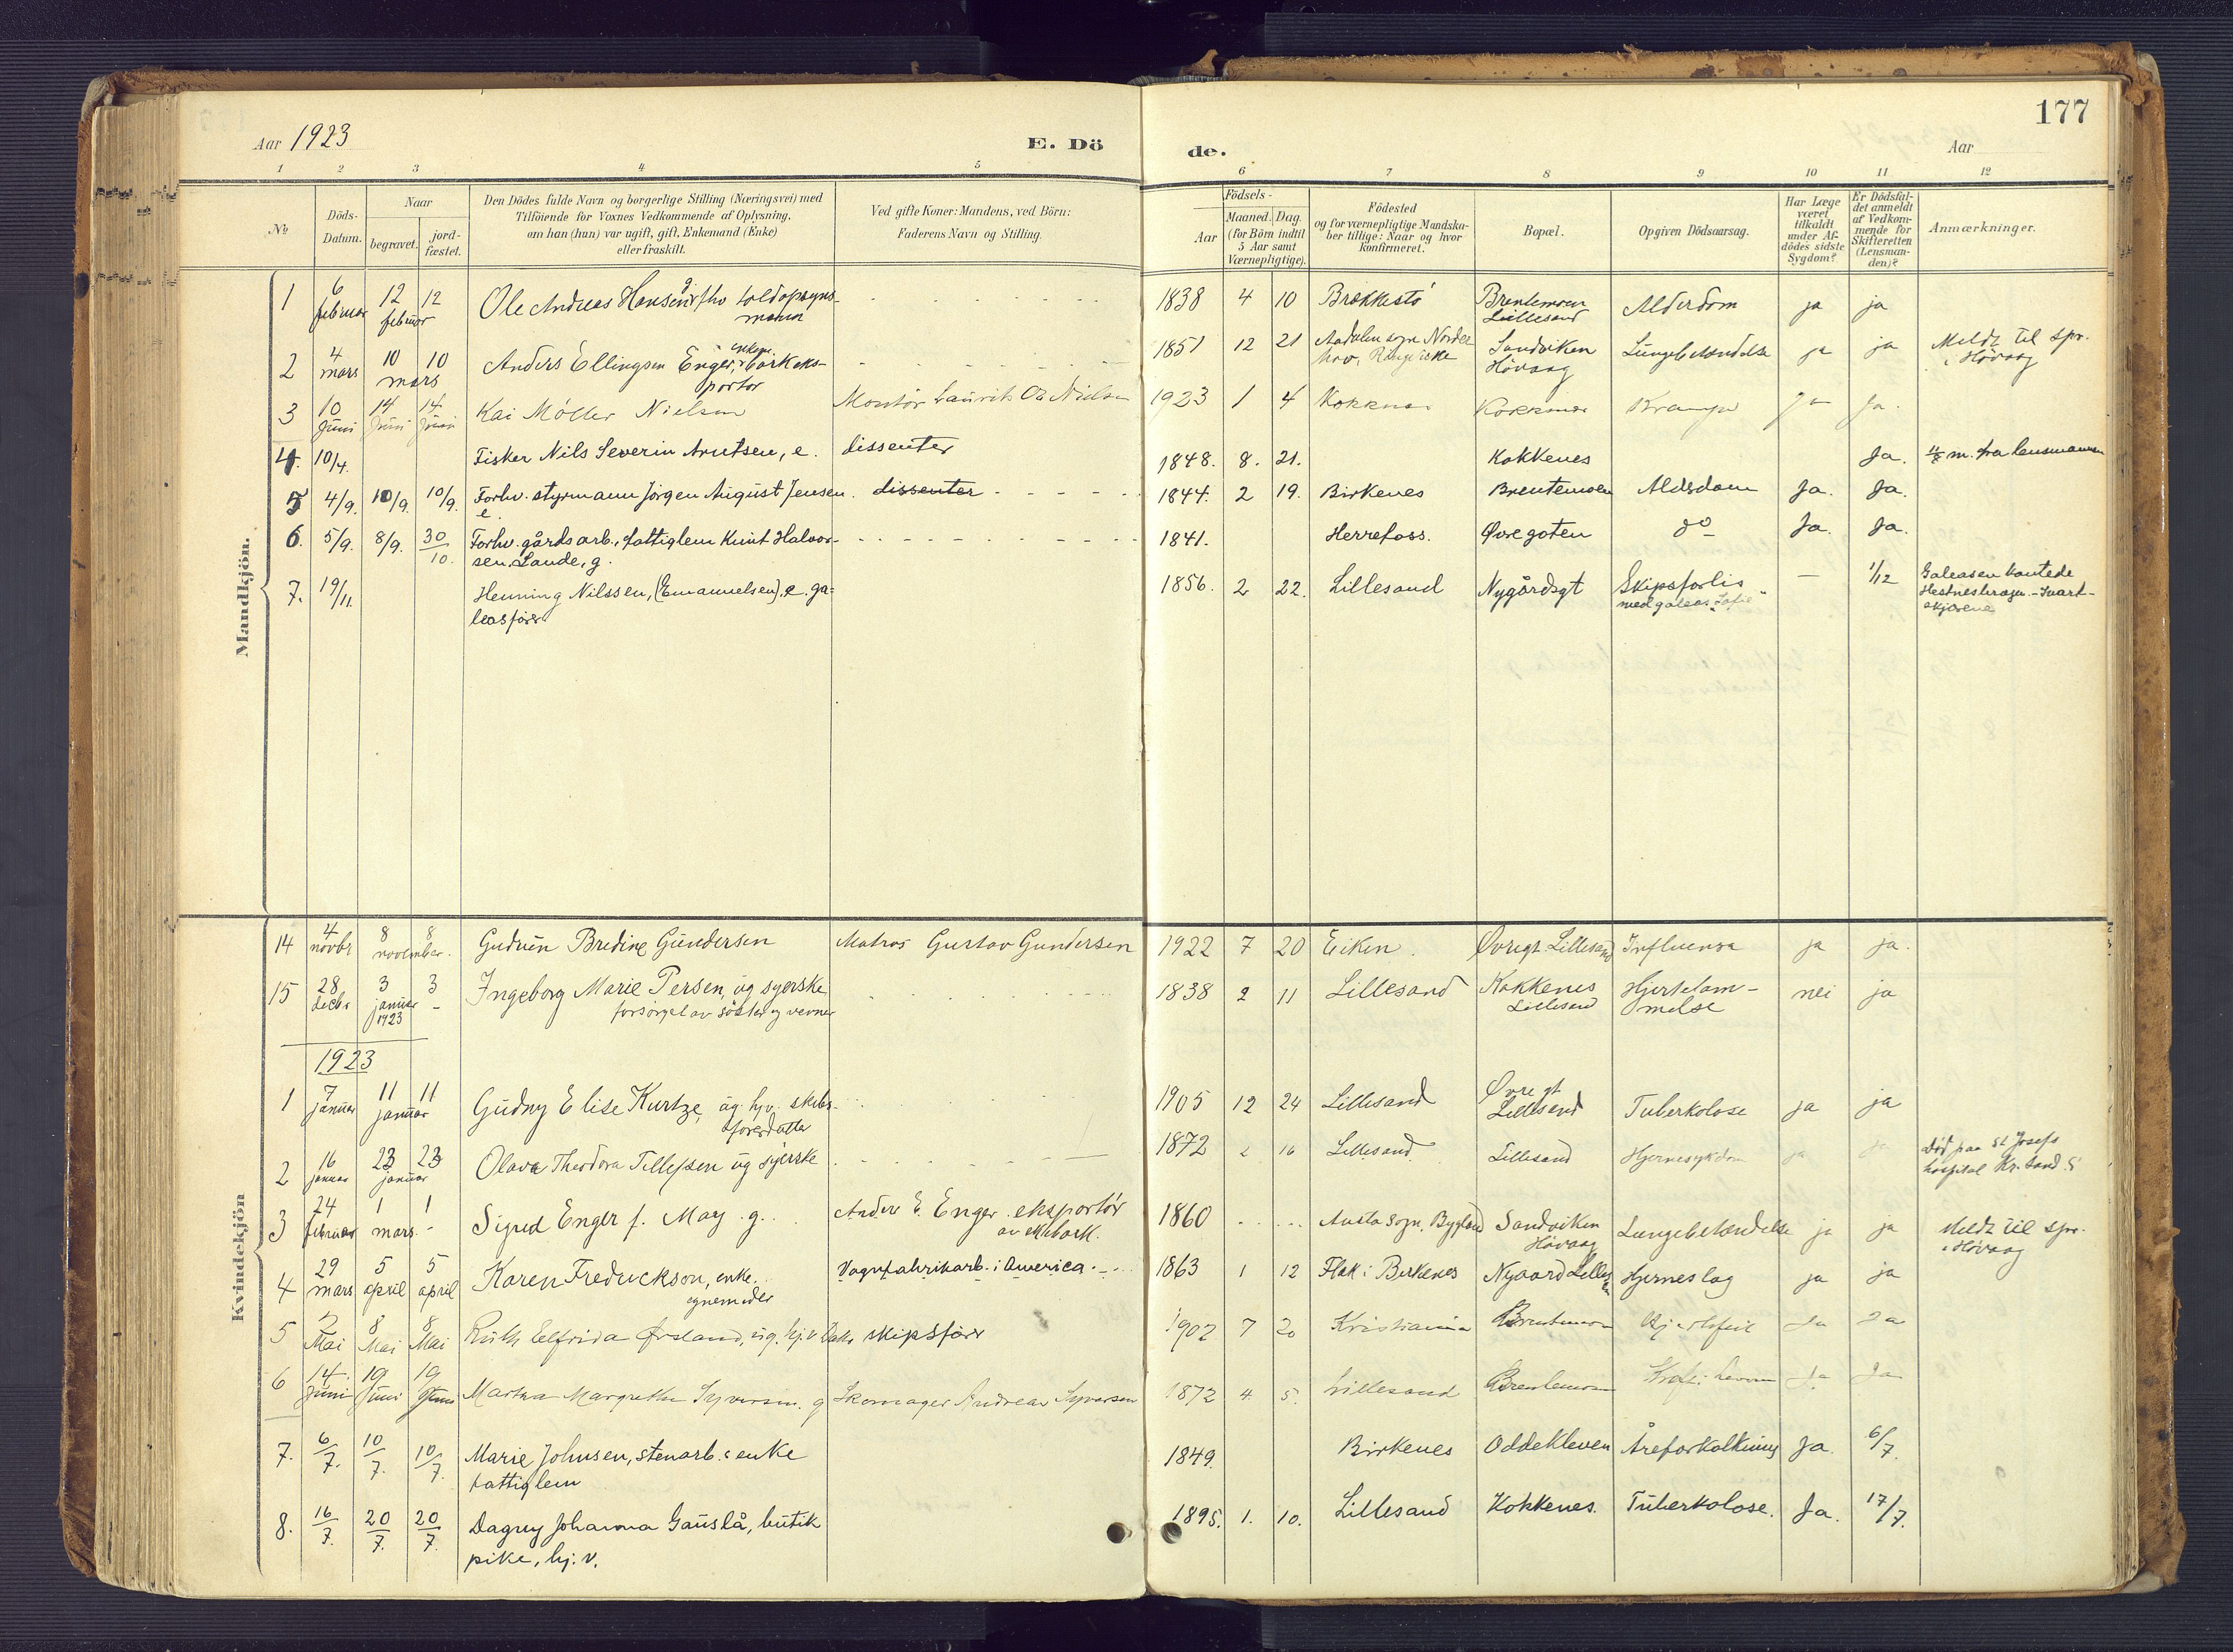 177
Aar 1923
E. Dö
de.
Aar
1 2 3 4 5 6 7 8 9 10 11 12
No
Döds-Datum.
Naar
begravet.
jord-fæstet.
Den Dödes fulde Navn og borgerlige Stilling (Næringsvei) med
Tilföiende for Voxnes Vedkommende af Oplysning,
om han (hun) var ugift, gift, Enkemand (Enke)
eller fraskilt.
Ved gifte Koner: Mandens, ved Börn:
Faderens Navn og Stilling.
Födsels-
Aar
Maaned. Dag.
(for Börn indtil
5 Aar samt
Værnepligtige).
Födested
og for værnepligtige Mandska-
ber tillige: Naar og hvor
konfirmeret.
Bopæl.
Opgiven Dödsaarsag.
Har Læge
været
tilkaldt
under Af-
dödes sidste
Sygdom?
Er Dödsfal-
det anmeldt
af Vedkom-
mende for
Skifteretten
(Lensman-
den)?
Anmærkninger.
Mandkjön.
1 6 februar 12 12 februar Ole Andreas Hansen g. fhv toldopsyns-
mann
1838 4 10 Brækkestö Brentemoen Lillesand Alderdom ja ja
2 4 mars 10 10 mars Anders Ellingsen Enger, enkem. barkeks-
portör
1851 12 21 Aadalen sogn Norder
hov, Ringerike Sandviken Hövaag Lungebetændelse ja ja Meldt til spr.
i Hövaag
3 10 Juni 14 Juni 14 Juni Kai Möller Nielsen Montör Laurits Nielsen 1923 1 4 Kokknes Kokknes Krampe Ja Ja.
4. 10/4. Fisker Nils Severin Arntsen, e. dissenter 1848. 8. 21. Kokkenes Ja. m. fra lensmannen
5 4/9. 10/9. 10/9. Forhv. styrmann Jörgen August Jensen. dissenter
e.
1844. 2 19. Birkenes Brentemoen Aldsdom Ja. Ja.
6. 5/9. 8/9. 30/10. Forhv. gårdsarb., fattiglem Knut Halvor-
sen Lande, g.
1841. Herrefoss. Øvregaten do Ja. Ja.
7. 19/11. Henning Nilssen, (Emanuelsen), e. ga-
leasförer
1856. 2 22. Lillesand Nygårdsgt Skipsforlis
med galeas "Sofie" — 1/12 Galeasen kantede
Hestneshragen - Svart-
skjærene
Kvindekjön
14 4 novbr 8 8 november. Gudrun Bredine Gundersen Matros Gustav Gundersen 1922 7 20 Eiken. Øvregt Lillesand Influensa ja ja.
15 28 decbr 3 januar 1923 3 - Ingeborg Marie Persen, ug syerske
forsörget av söster og venner
1838 2 11 Lillesand Kokkenes Lillesand Hjertelam-
melse nei ja
1923
1 7 januar 11 11 januar Gudny Elise Kurtze, ug. hjv. skibs-
förerdatter
1905 12 24 Lillesand Øvregt Lillesand Tuberkolose ja ja
2 16 januar 23 23 januar Olava Theodora Tellefsen ug syerske 1872 2 16 Lillesand Lillesand Hjernesykdom ja ja Död paa St Josefs
hospital Kr. sand S
3 24 februar 1 1 mars - Sigred Enger f. Moy g. Anders E. Enger eksportör
av ekbark.
1860 Austa sogn, Bygland Sandviken Hövaag Lungebetændelse ja ja Meldt til spr.
i Hövaag
4 29 mars 5 april 5 april Karen Fredrickson, enke.
egne midler
Vognfabrikarb. i America. 1863 1 12 Flak i Birkenes Nygaard Lillesand Hjerneslag ja ja
5 2 Mai 8 Mai 8 Mai Ruth Elfrida Örsland, ug. hj.v Datr skipsförer 1902 7 20 Kristiania Brentemoen Hjertefeil Ja Ja
6 14 Juni 19 Juni 19 Juni Martha Margrethe Syversen. g Skomager Andreas Syversen 1872 4 5. Lillesand Brentemoen Kræft i leveren Ja Ja
7. 6/7. 10/7. 10/7. Marie Johnsen, stenarb.s enke
fattiglem
1849. Birkenes Oddekleven Åreforkalkning Ja. 6/7.
8. 16/7. 20/7. 20/7. Dagny Johanna Gauslå, butik
pike, hj. v.
1895. 1. 10. Lillesand Kokkenes. Tuberkolose. Ja. 17/7.